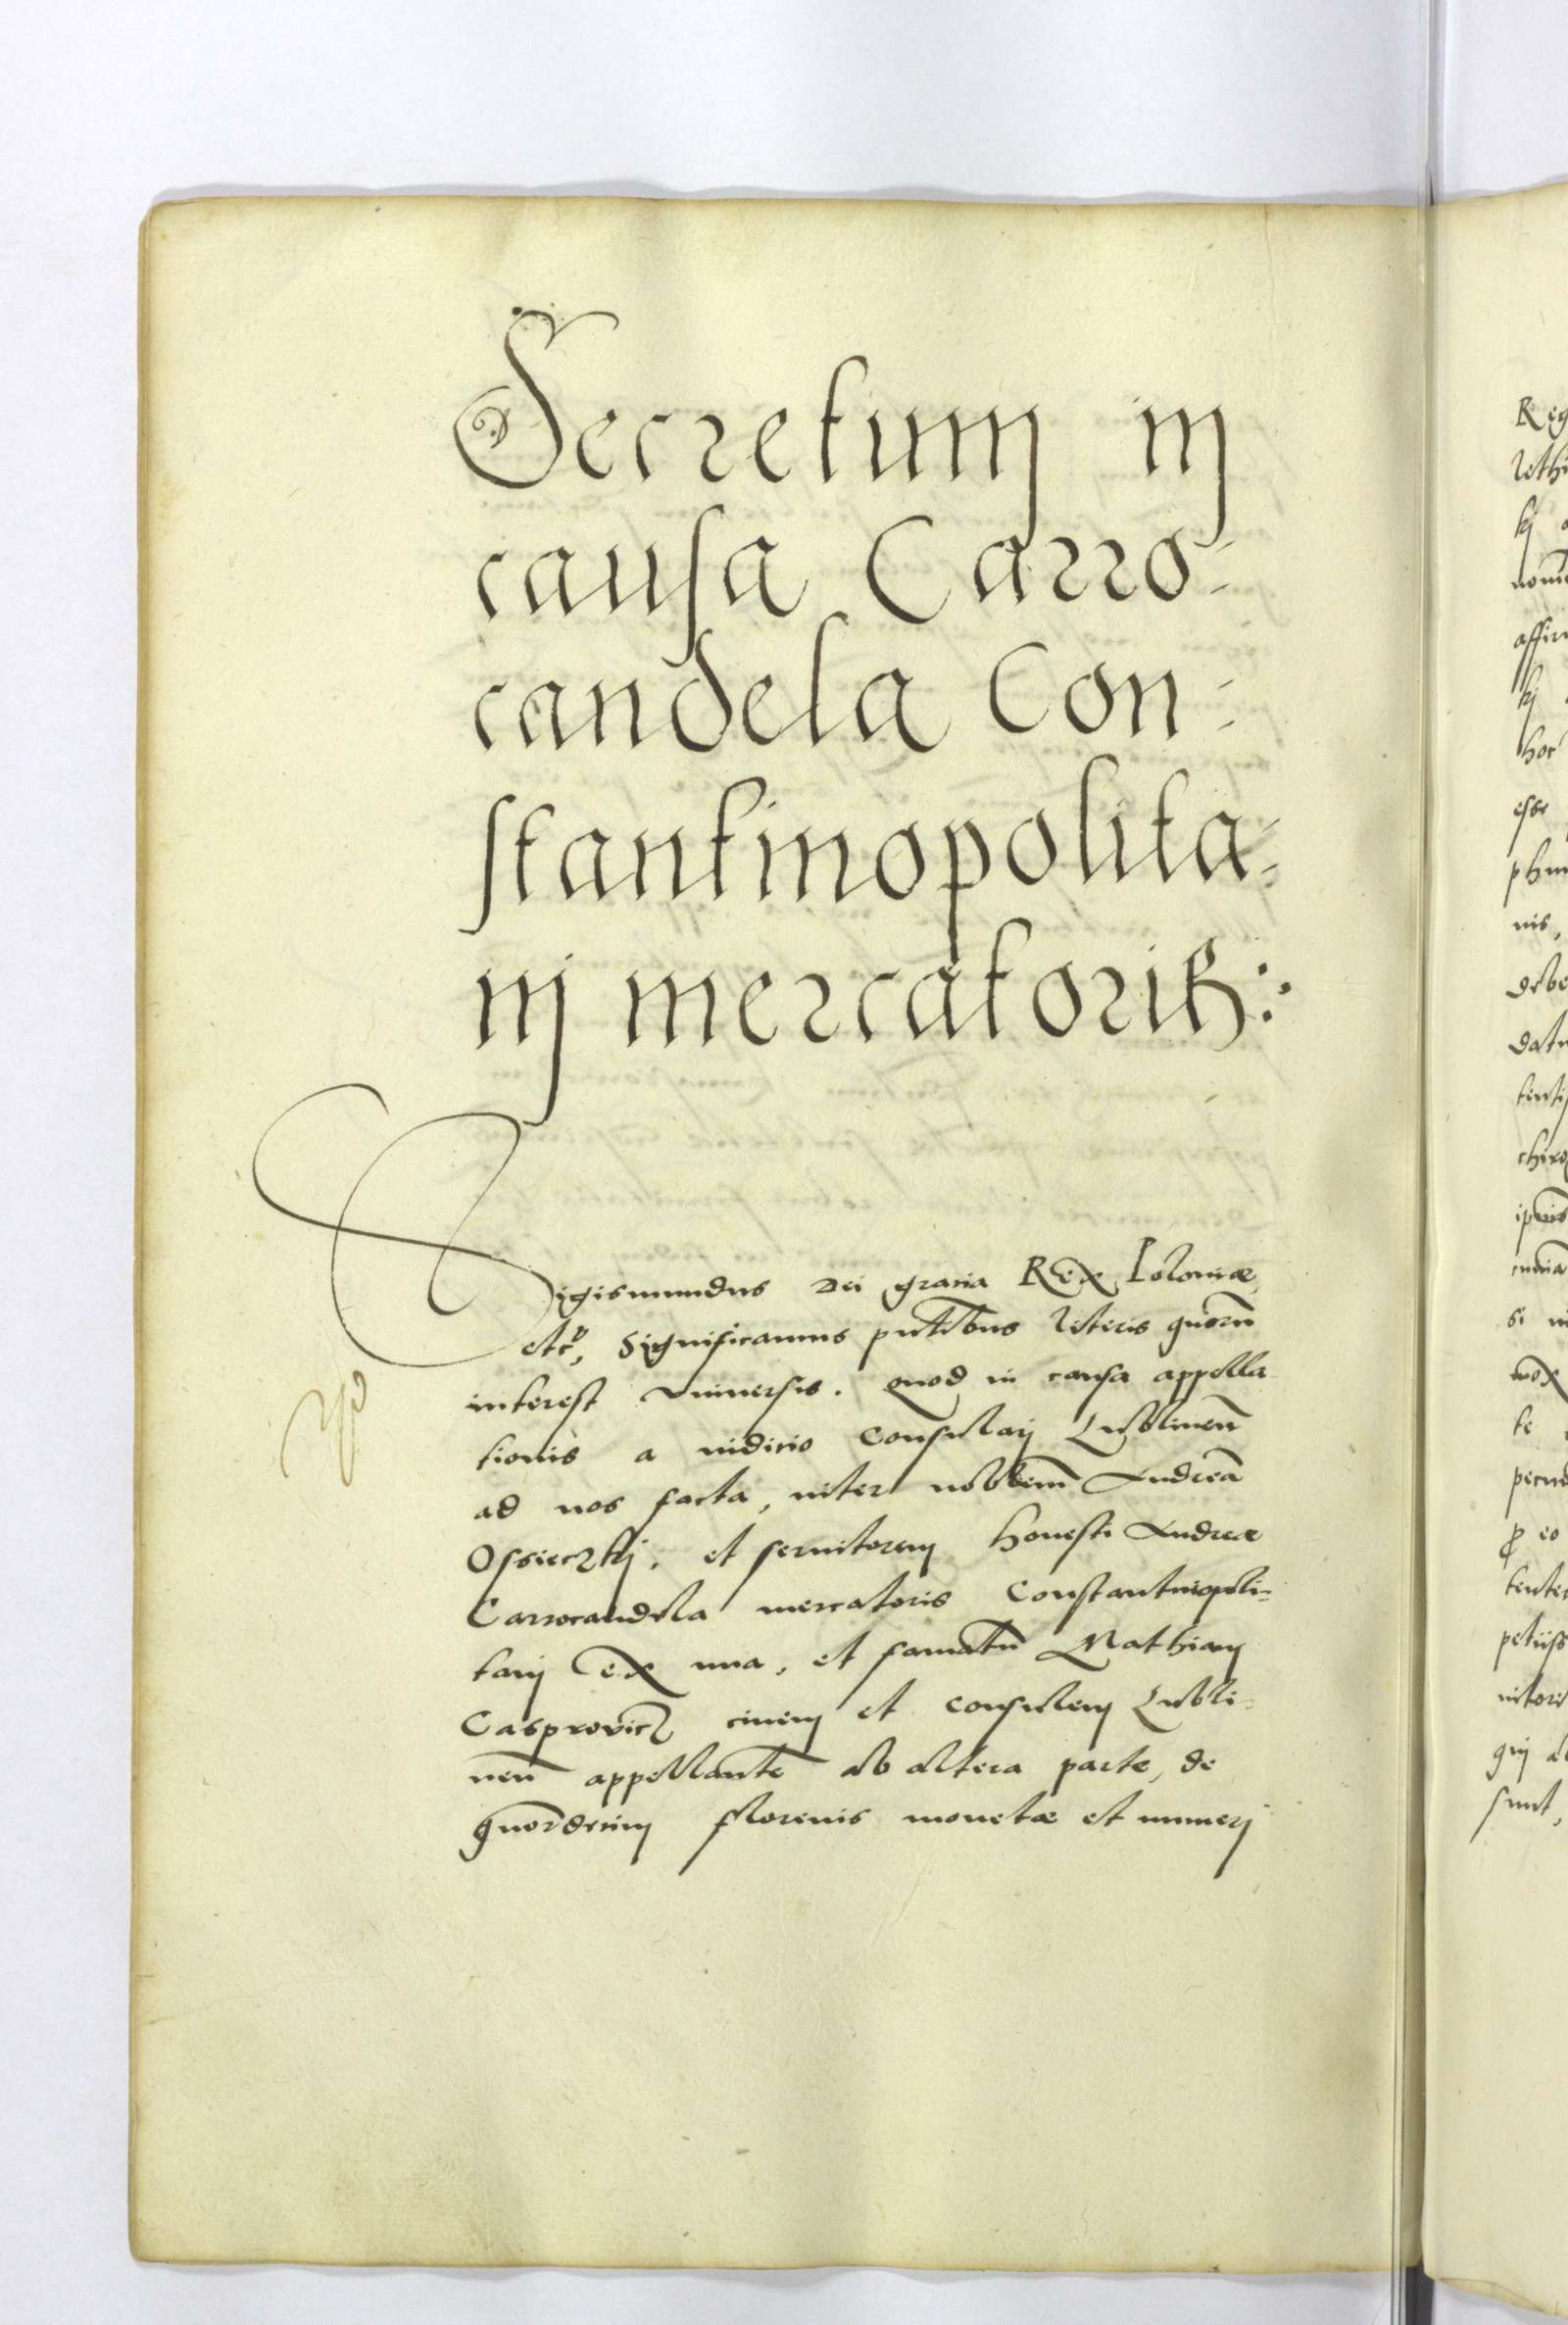 Decretum in
causa Carro-
candela Con-
stantinopolita-
nj mercatoris:
Sigismundus Dei gratia Rex Poloniæ
etc, Significamus pntibus literis quorũ
interest vniuersis. quod in causa appella
tionis a iudicio Consularj Lublineñ
ad nos facta, inter nobilem Andreã
Ossieczkj. et seruitorem honesti Andreæ
Carrocandela mercatoris Constantinopoli-
tanj ex una, et famatũ Mathiam
Casprovicz ciuem et consulem Lubli-
neñ appellantẽ ab altera parte, de
quordecim florenis monetæ et numerj